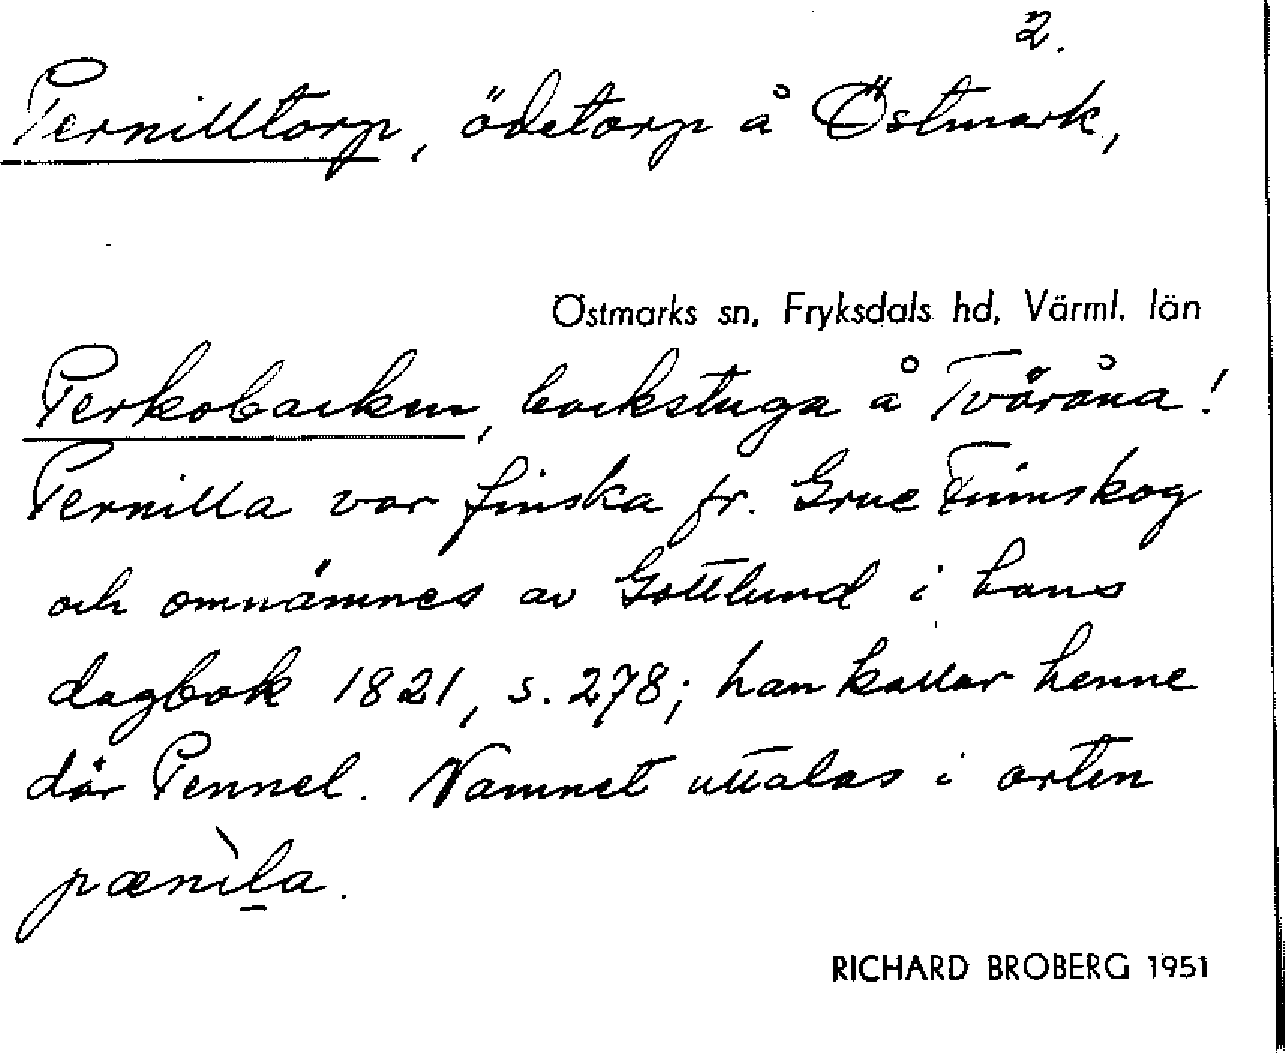 2.
Pernilltorp, ödetorp å Östmark,
Östmarks sn, Fryksdals hd, Värml. län
Perkobacken, backstuga å Tväråna!
Pernilla var finska fr. Grue Finnskog
och omnämnes av Gottlund i hans
dagbok 1821, s. 278; han kallar henne
där Pennel. Namnet uttalas i orten
pænìla.
RICHARD BROBERG 1951